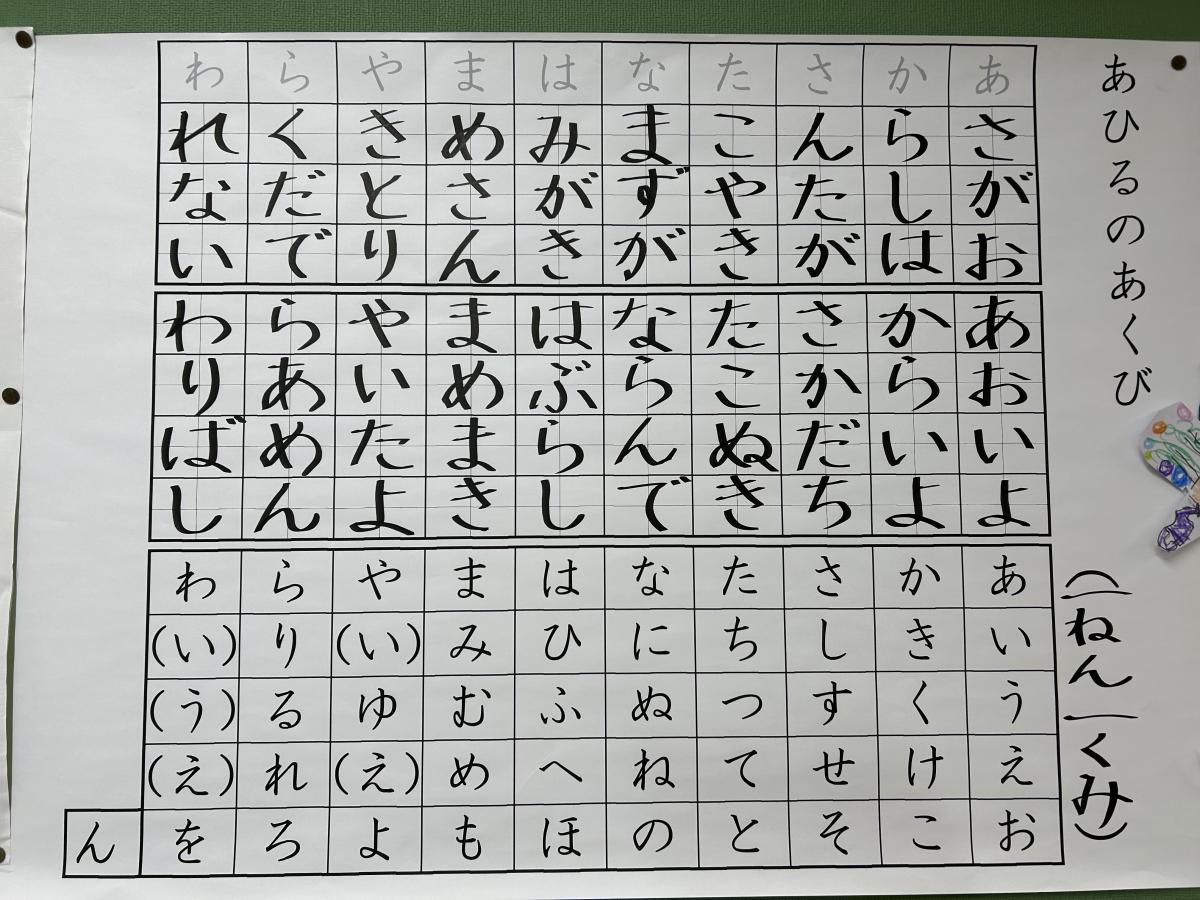 あひるのあくび
(一ねん一くみ)
あさがお
からしは
さんたが
たこやき
なまずが
はみがき
まめさん
やきとり
らくだで
われない
あおいよ
からいよ
さかだち
たこぬき
ならんで
はぶらし
まめまき
やいたよ
らあめん
わりばし
あいうえお
かきくけこ
さしすせそ
たちつてと
なにぬねの
はひふへほ
まみむめも
や(い)ゆ(え)よ
らりるれろ
わ(い)(う)(え)を
ん